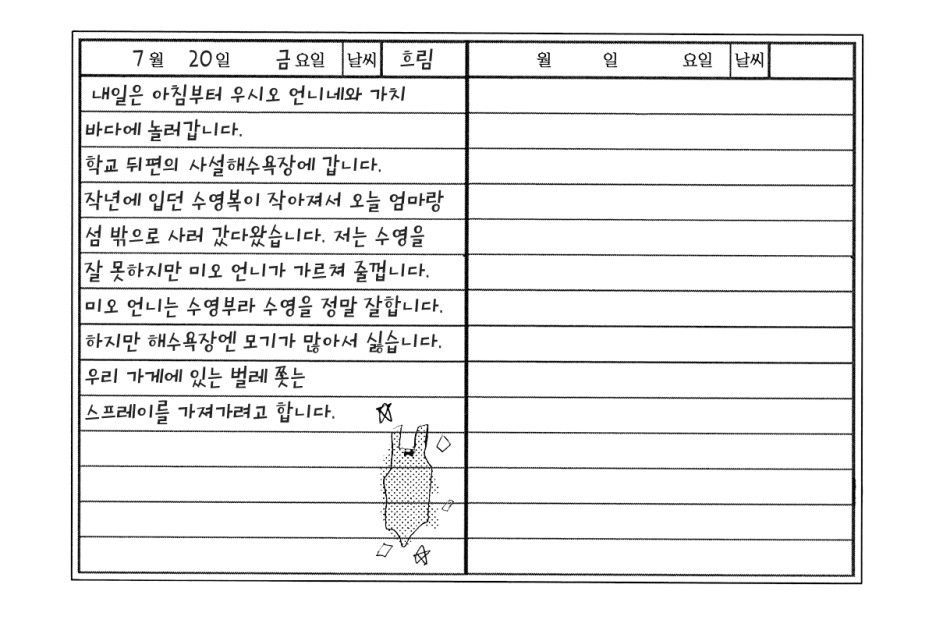 7월 20일 금요일 날씨 흐림
내일은 아침부터 우시오 언니네와 가치
바다에 놀러갑니다.
학교 뒤편의 사설해수욕장에 갑니다.
작년에 입던 수영복이 작아져서 오늘 엄마랑
섬 밖으로 사러 갔다왔습니다. 저는 수영을
잘 못하지만 미오 언니가 가르쳐 줄껍니다.
미오 언니는 수영부라 수영을 정말 잘합니다.
하지만 해수욕장엔 모기가 많아서 싫습니다.
우리 가게에 있는 벌레 쫓는
스프레이를 가져가려고 합니다.
월 일 요일 날씨